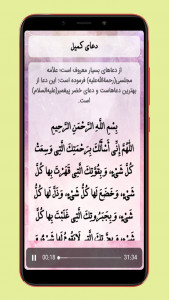 دعای کمیل
از دعاهای بسیار معروف است؛ علّامه
مجلسی(رحمةاللّه‌علیه) فرموده است: این دعا از
بهترین دعاهاست و دعای خضر پیغمبر(علیه‌السلام)
است.
بِسْمِ اللَّهِ الرَّحْمَنِ الرَّحِيمِ
اللَّهُمَّ إِنِّي أَسْأَلُكَ بِرَحْمَتِكَ الَّتِي وَسِعَتْ
كُلَّ شَيْءٍ، وَ بِقُوَّتِكَ الَّتِي قَهَرْتَ بِهَا كُلَّ
شَيْءٍ، وَ خَضَعَ لَهَا كُلُّ شَيْءٍ، وَ ذَلَّ لَهَا كُلُّ
شَيْءٍ، وَ بِجَبَرُوتِكَ الَّتِي غَلَبْتَ بِهَا كُلَّ
شَيْءٍ، وَ بِعِزَّتِكَ الَّتِي لَا يَقُومُ لَهَا
00:18 31:34